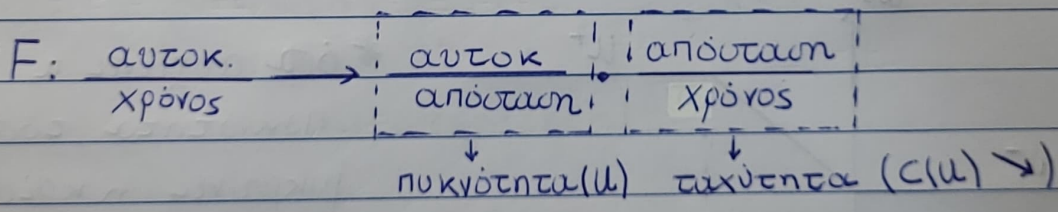 F: αυτοκ. / χρόνος → αυτοκ / απόσταση · απόσταση / χρόνος
↓ ↓
πυκνότητα (u) ταχύτητα (c(u) ↘)